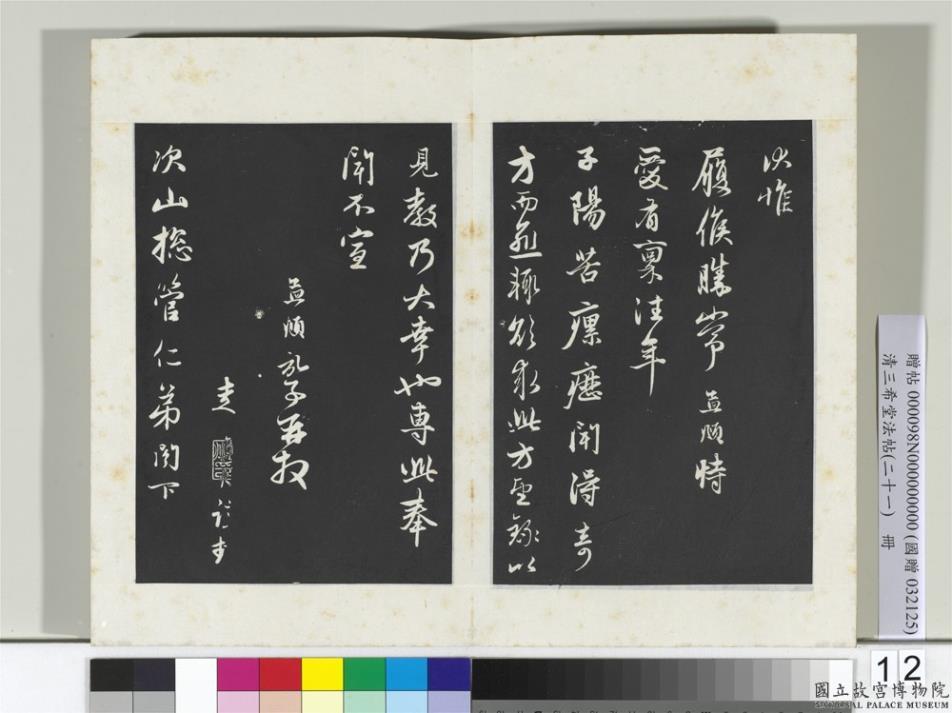 伏惟
履候勝常孟頫特
愛有稟往年
子陽苦瘰癧聞得奇
方而愈輒欲求此方望錄以
見教乃大幸也專此奉
聞不宣
孟頫
次山總管仁弟閣下
贈帖 000098N000000000 (國贈 032125)
清三希堂法帖(二十一) 冊
12
國立故宮博物院
NATIONAL PALACE MUSEUM